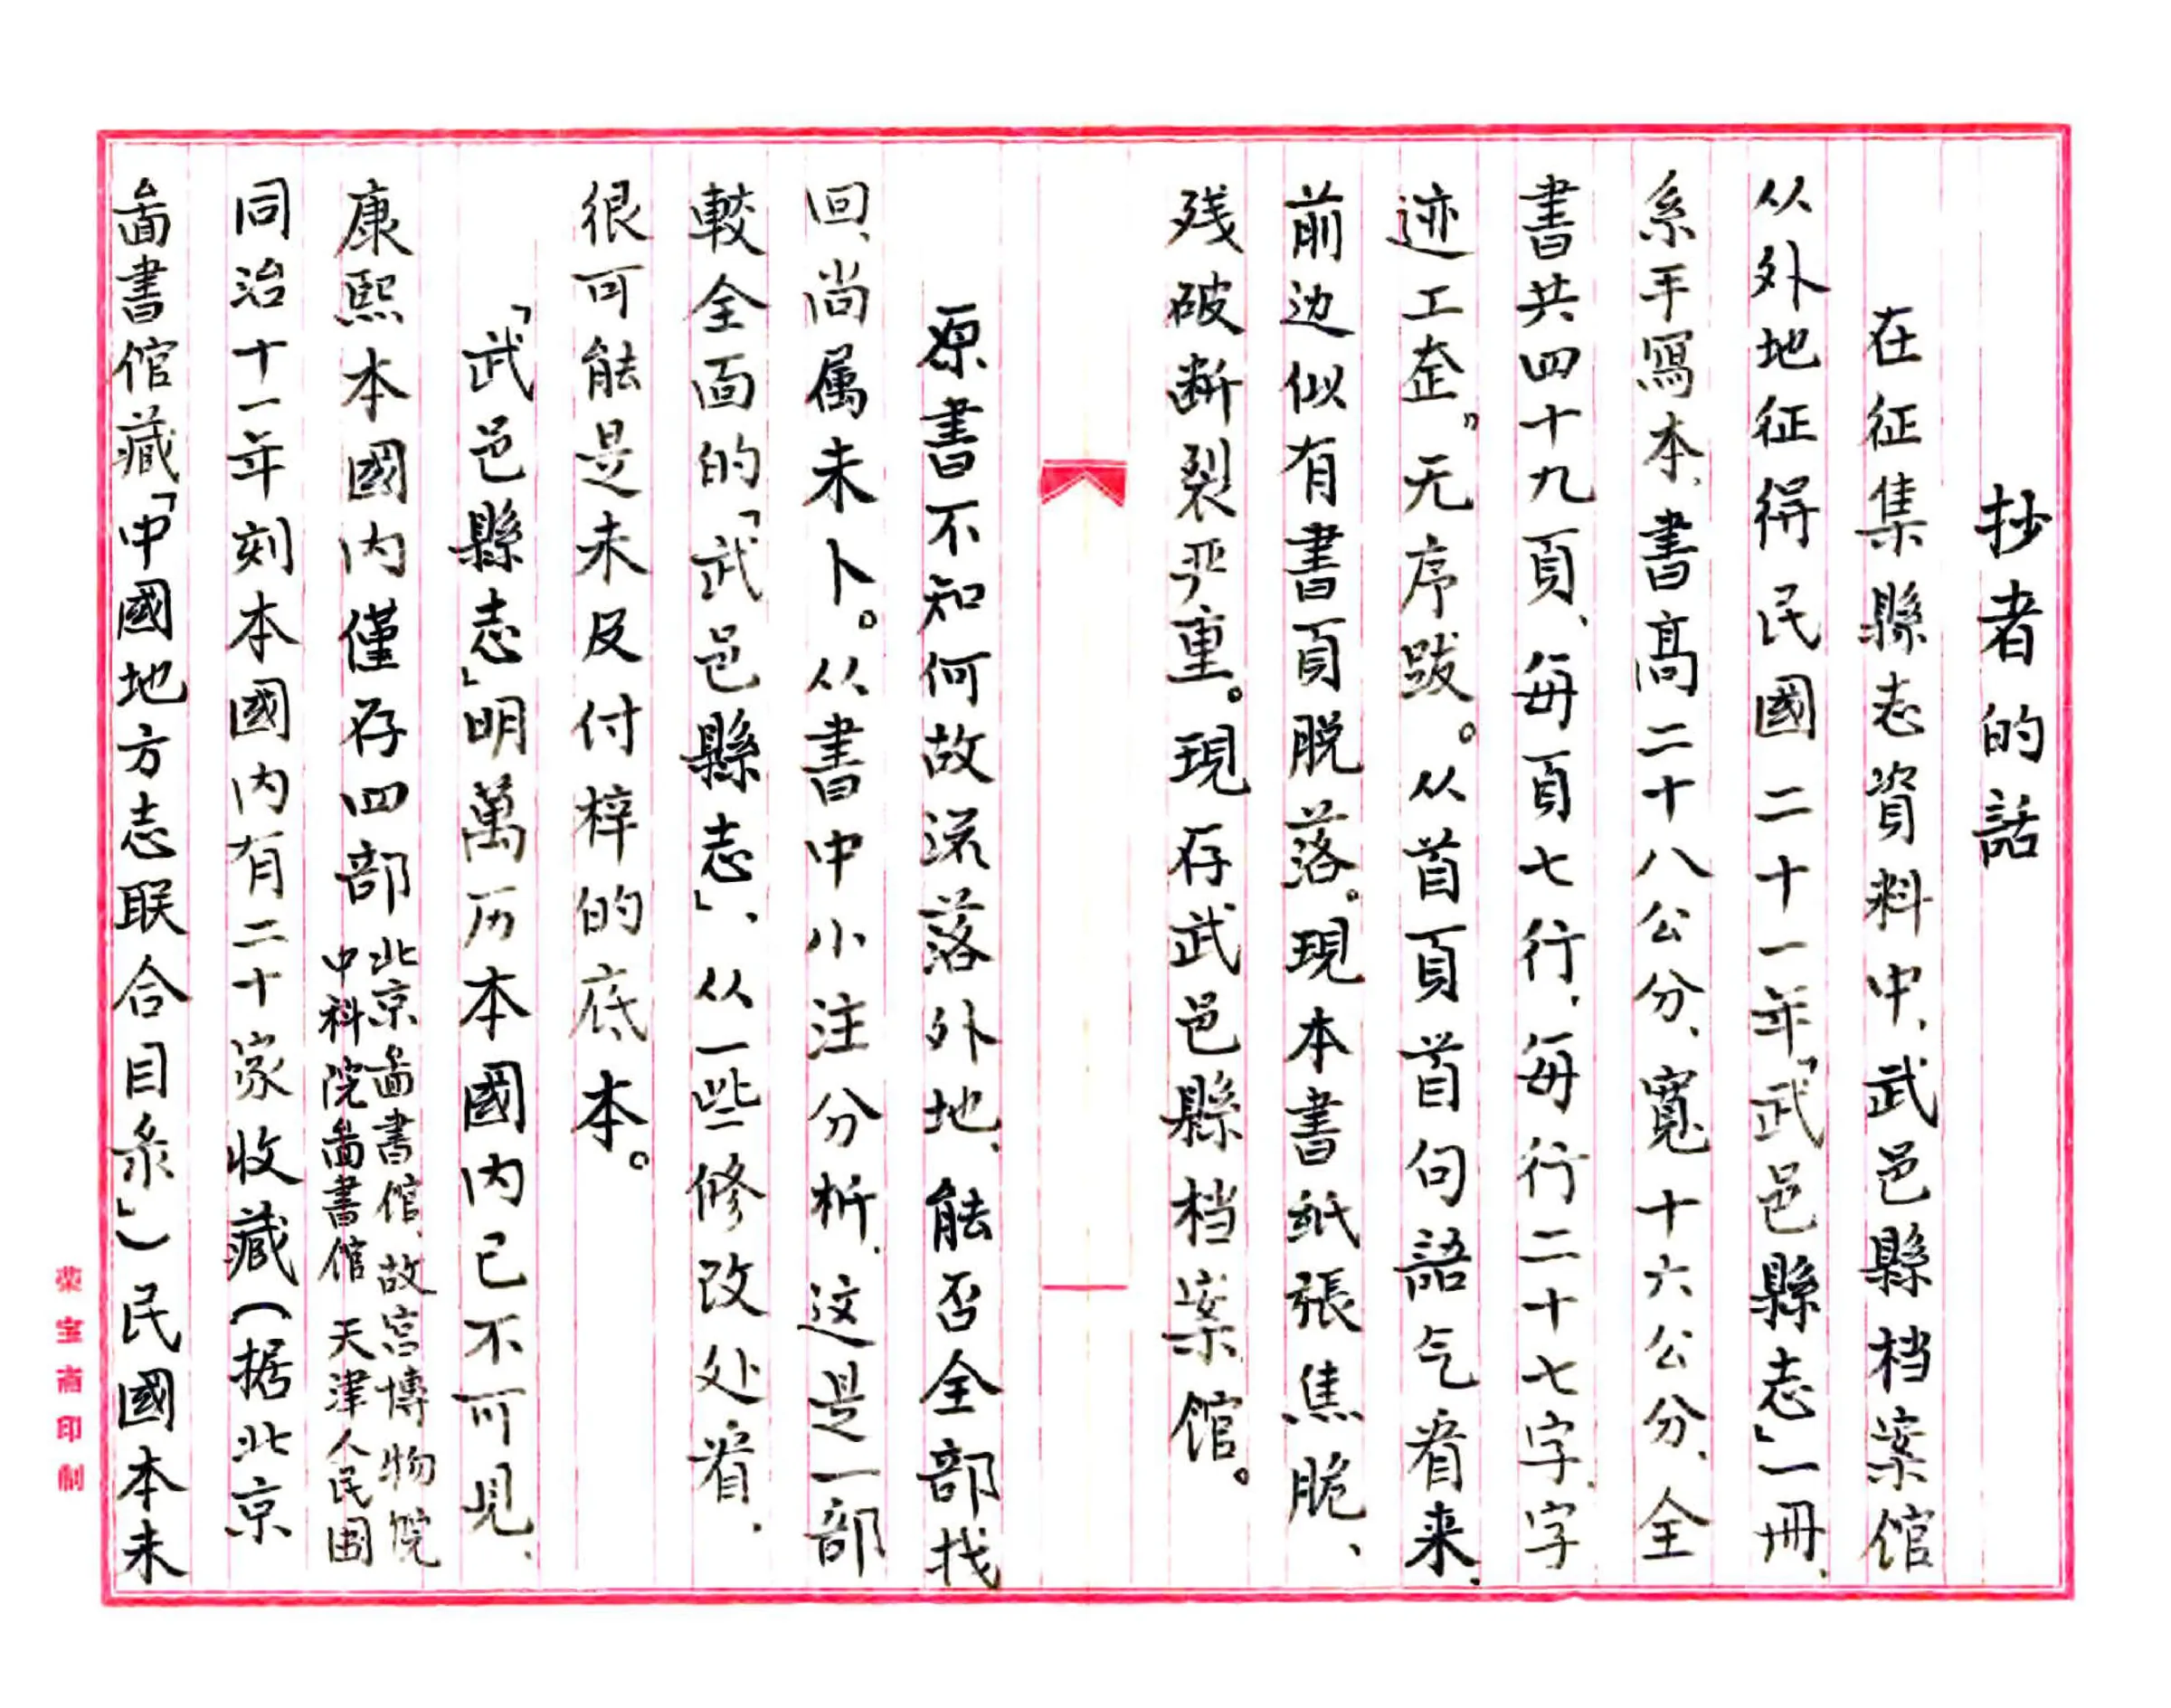 抄者的話
在征集縣志資料中、武邑縣档案馆
从外地征得民國二十一年「武邑縣志」一冊、
系手寫本、書高二十八公分、寬十六公分、全
書共四十九頁、每頁七行、每行二十七字、字
迹工垄〃无序跋。从首頁首句語气看来、
前边似有書頁脱落。現本書紙張焦脆、
残破断裂严重。現存武邑縣档案馆。
原書不知何故流落外地、能否全部找
回、尚属未卜。从書中小注分析、这是一部
較全面的「武邑縣志」、从一些修改处看、
很可能是未及付梓的底本。
「武邑縣志」明萬历本國内已不可見、
康熙本國内僅存四部 北京啚書倌、故宫博物院
中科院啚書倌 天津人民圕
同治十一年刻本國内有二十家收藏(据北京
啚書倌藏「中國地方志联合目录」)民國本未
荣宝斋印制